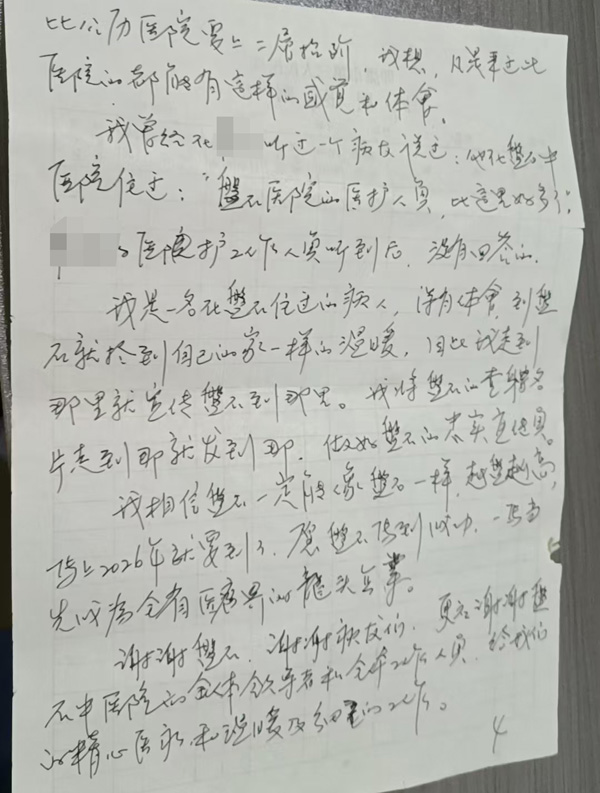 比公历医院要上二层抬阶，我想，凡是来过此
医院的都能有这样的感觉和体会。
我曾经在 听过一个病友说过：他在盘石中
医院住过："盘石医院的医护人员，比这里好多了"
医护工作人员听到后，没有回答的。
我是一名在盘石住过的病人，深有体会，到盘
石就等到自己的家一样的温暖，因此我走到
那里就宣传盘石到那里。我将盘石的 名
片走到那就发到那，做好盘石的忠实宣传员。
我相信盘石一定能像盘石一样，越盘越高，
马上2026年就要到了，愿盘石马到成功，一马当
先成为全省医疗界的龙头企业。
谢谢盘石，谢谢病友们，更应谢谢盘
石中医院的全体领导者和全体工作人员，给我们
的精心医疗和温暖及细 的工作。
4